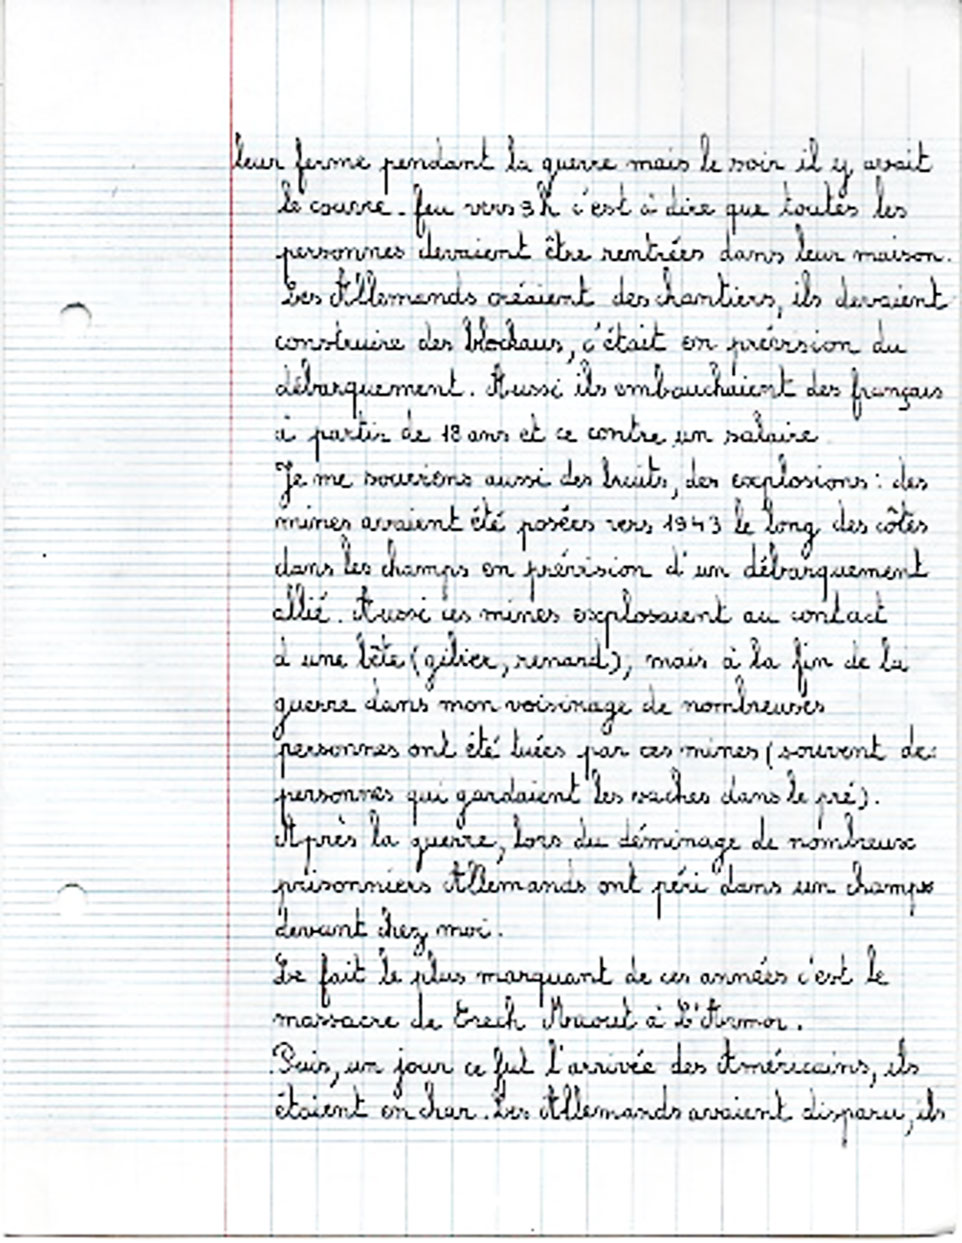 leur ferme pendant la guerre mais le soir il y avait
le couvre-feu vers 3h c'est à dire que toutes les
personnes devaient être rentrées dans leur maison.
Les Allemands créaient des chantiers, ils devaient
construire des blockaus, c'était en prévision du
débarquement. Aussi ils embauchaient des français
à partir de 18 ans et ce contre un salaire.
Je me souviens aussi des bruits, des explosions : des
mines avaient été posées vers 1943 le long des côtes
dans les champs en prévision d'un débarquement
allié. Aussi ces mines explosaient au contact
d'une bête (gibier, renard), mais à la fin de la
guerre dans mon voisinage de nombreuses
personnes ont été tuées par ces mines (souvent des
personnes qui gardaient les vaches dans le pré).
Après la guerre, lors du déminage de nombreux
prisonniers Allemands ont péri dans un champs
devant chez moi.
Le fait le plus marquant de ces années c'est le
massacre de Crech Maout à L'Armor.
Puis, un jour ce fut l'arrivée des Américains, ils
étaient en char. Les Allemands avaient disparu, ils